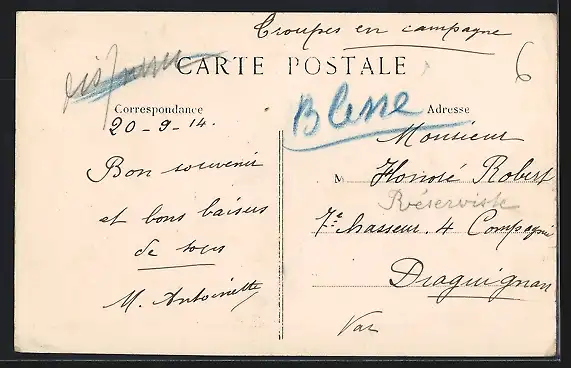 Troupes en campagne
6
disparu
CARTE POSTALE
Blesse
Correspondance
Adresse
20-9-14.
Bon souvenir
et bons baisers
de tous
M. Antoinette
Monsieur
M Honoré Robert
Réserviste
7e chasseur. 4 Compagnie
Draguignan
Var